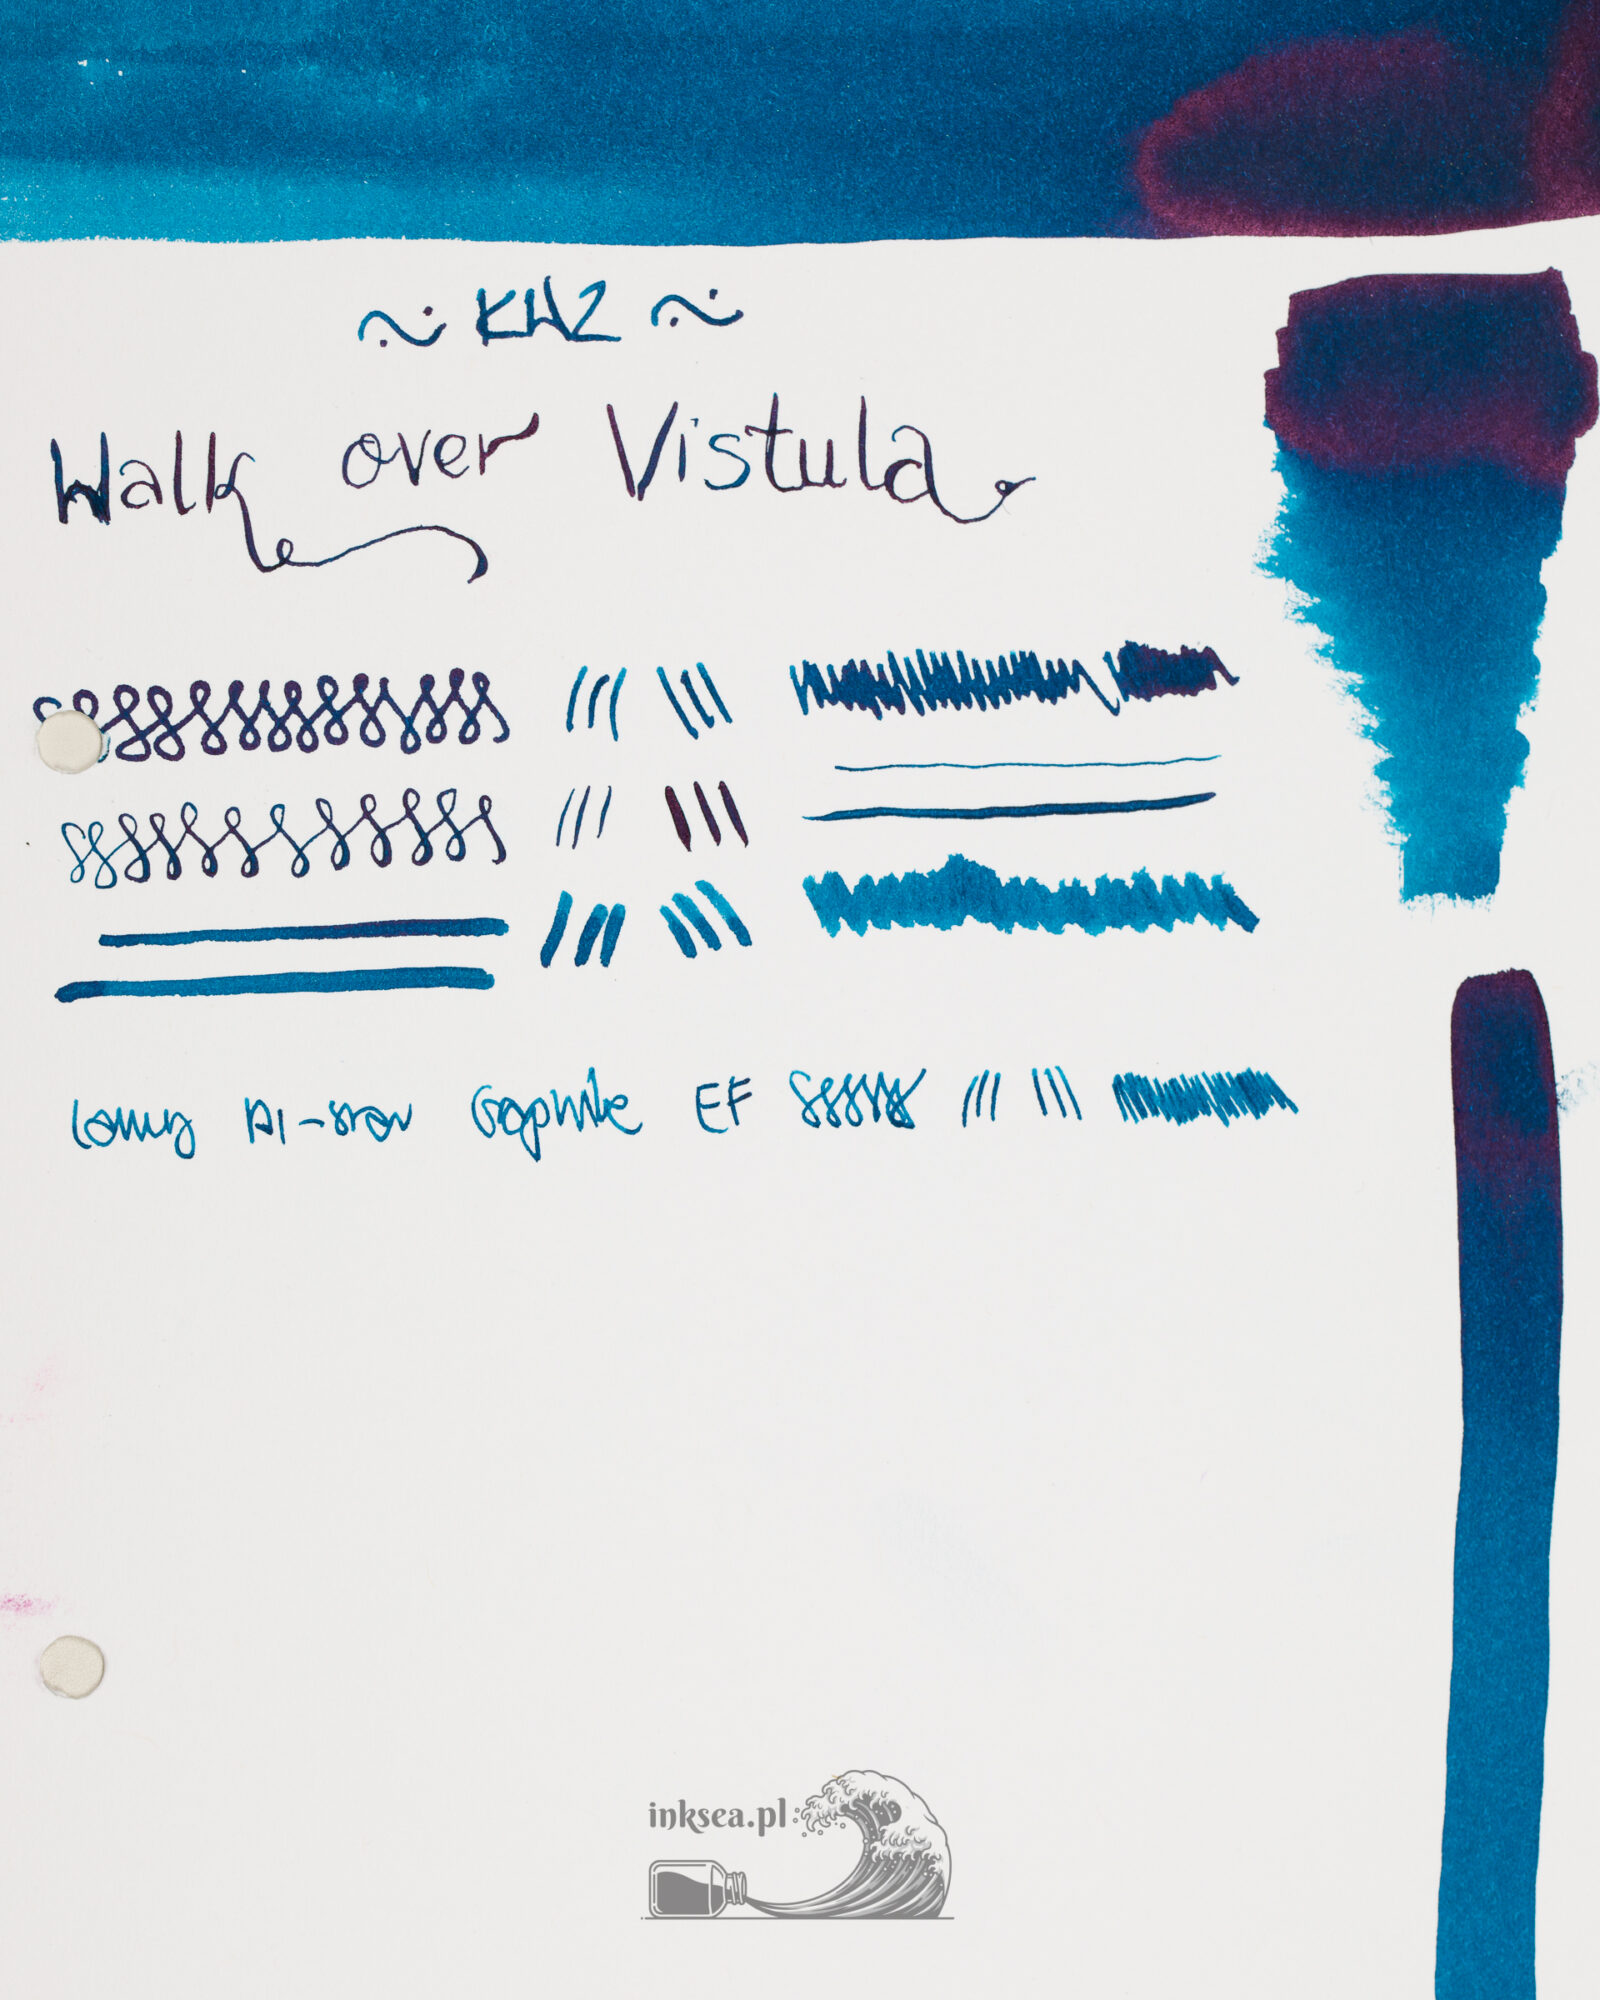 ~ KWZ ~
Walk over Vistula
Lamy Al-star Graphite EF
inksea.pl